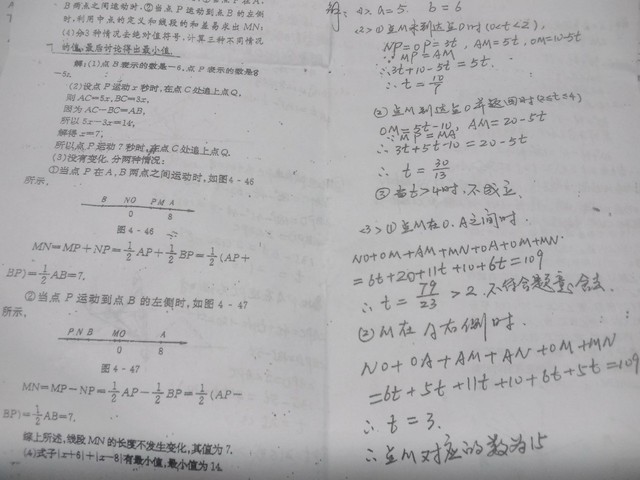 B两点之间运动时,②当点P运动到点B的左侧
时,利用中点的定义和线段的和差易求出MN;
(4)分3种情况去绝对值符号,计算三种不同情况
的值,最后讨论得出最小值.
解:(1)点B表示的数是-6,点P表示的数是8
-5t.
(2)设点P运动x秒时,在点C处追上点Q,
则AC=5x,BC=3x,
因为AC-BC=AB,
所以5x-3x=14,
解得x=7,
所以点P运动7秒时,在点C处追上点Q.
(3)没有变化.分两种情况:
①当点P在A、B两点之间运动时,如图4-46
所示,
B NO PM A
0 8
图4-46
MN=MP+NP=1/2AP+1/2BP=1/2(AP+
BP)=1/2AB=7.
②当点P运动到点B的左侧时,如图4-47
所示,
P N B MO A
0 8
图4-47
MN=MP-NP=1/2AP-1/2BP=1/2(AP-
BP)=1/2AB=7.
综上所述,线段MN的长度不发生变化,其值为7.
(4)式子|x+6|+|x-8|有最小值,最小值为14.
<1> a=5. b=6
<2> ①点M未到达点O时(0<t<2),
NP=OP=3t, AM=5t, OM=10-5t
∵MP=AM
∴3t+10-5t=5t.
∴t=10/7
②点M到达点O并返回时(2≤t≤4)
OM=5t-10, AM=20-5t
∵MP=MA
∴3t+5t-10=20-5t
∴t=30/13
③当t>4时,不成立.
<3>①点M在O、A之间时.
NO+OM+AM+MN+OA+OM+MN
=6t+20+11t+10+6t=109
∴t=79/23>2.不符合题意,舍去
②M在A右侧时.
NO+OA+AM+AN+OM+MN
=6t+5t+11t+10+6t+5t=109
∴t=3.
∴点M对应的数为15